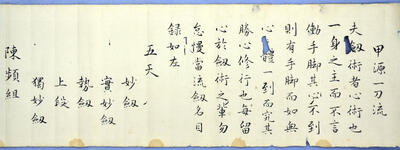 甲源一刀流
夫劔術者心術也
一身之主而不言
働手脚其心不到
則有手脚而如無
心一到而究其
勝心修行也每留
心於劔術之輩勿
怠慢當流劔名目
録如左
五天
妙劔
實妙劔
勢劔
上段
獨妙劔
陳頻組